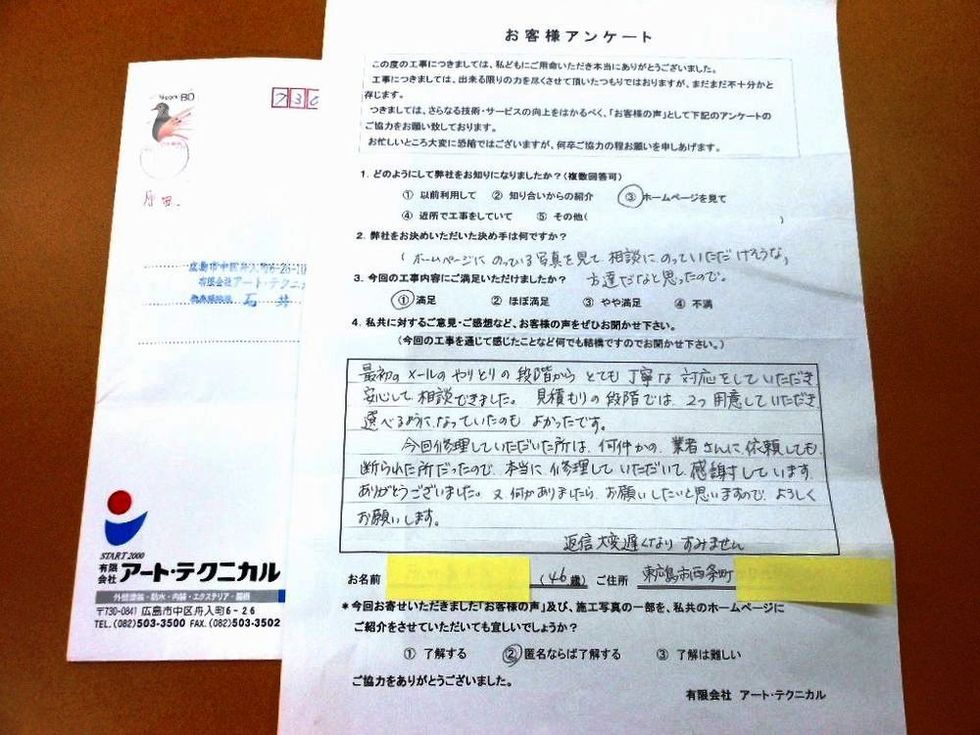 お客様アンケート
この度の工事につきましては、私どもにご用命いただき本当にありがとうございました。
工事につきましては、出来る限りの力を尽くさせて頂いたつもりではおりますが、まだまだ不十分かと
存じます。
つきましては、さらなる技術・サービスの向上をはかるべく、「お客様の声」として下記のアンケートの
ご協力をお願い致しております。
お忙しいところ大変に恐縮ではございますが、何卒ご協力の程お願いを申しあげます。
1. どのようにして弊社をお知りになりましたか?(複数回答可)
① 以前利用して ② 知り合いからの紹介 ③ ホームページを見て
④ 近所で工事をしていて ⑤ その他( )
2. 弊社をお決めいただいた決め手は何ですか?
(ホームページにのっている写真を見て 相談にのっていただけそうな、
方達だなと思ったので。
3. 今回の工事内容にご満足いただけましたか?
① 満足 ② ほぼ満足 ③ やや満足 ④ 不満
4. 私共に対するご意見・ご感想など、お客様の声をぜひお聞かせ下さい。
(今回の工事を通じて感じたことなど何でも結構ですのでお聞かせ下さい。)
最初の メールの やりとりの 段階から とても 丁寧な 対応をして いただき
安心して 相談できました。 見積もりの 段階では、2つ 用意していただき
選べるように なっていたのも よかったです。
今回修理していただいた所は、何件かの 業者さんに 依頼しても
断られた所だったので、本当に 修理して いただいて 感謝しています。
ありがとうございました。又 何かありましたら お願いしたいと思いますので、よろしく
お願いします。
返信 大変遅くなり すみません
お名前 (46歳) ご住所 東広島市西条町
*今回お寄せいただきました「お客様の声」及び、施工写真の一部を、私共のホームページに
ご紹介をさせていただいても宜しいでしょうか?
① 了解する ② 匿名ならば了解する ③ 了解は難しい
ご協力をありがとうございました。
有限会社 アート・テクニカル
80
730
広島市中区舟入町6-26-10
有限会社アート・テクニ
石井
START 2000
有限会社 アート・テクニカル
外壁塗装・防水・内装・エクステリア・屋根
〒730-0841 広島市中区舟入町6-26
TEL.(082)503-3500 FAX.(082)503-3502